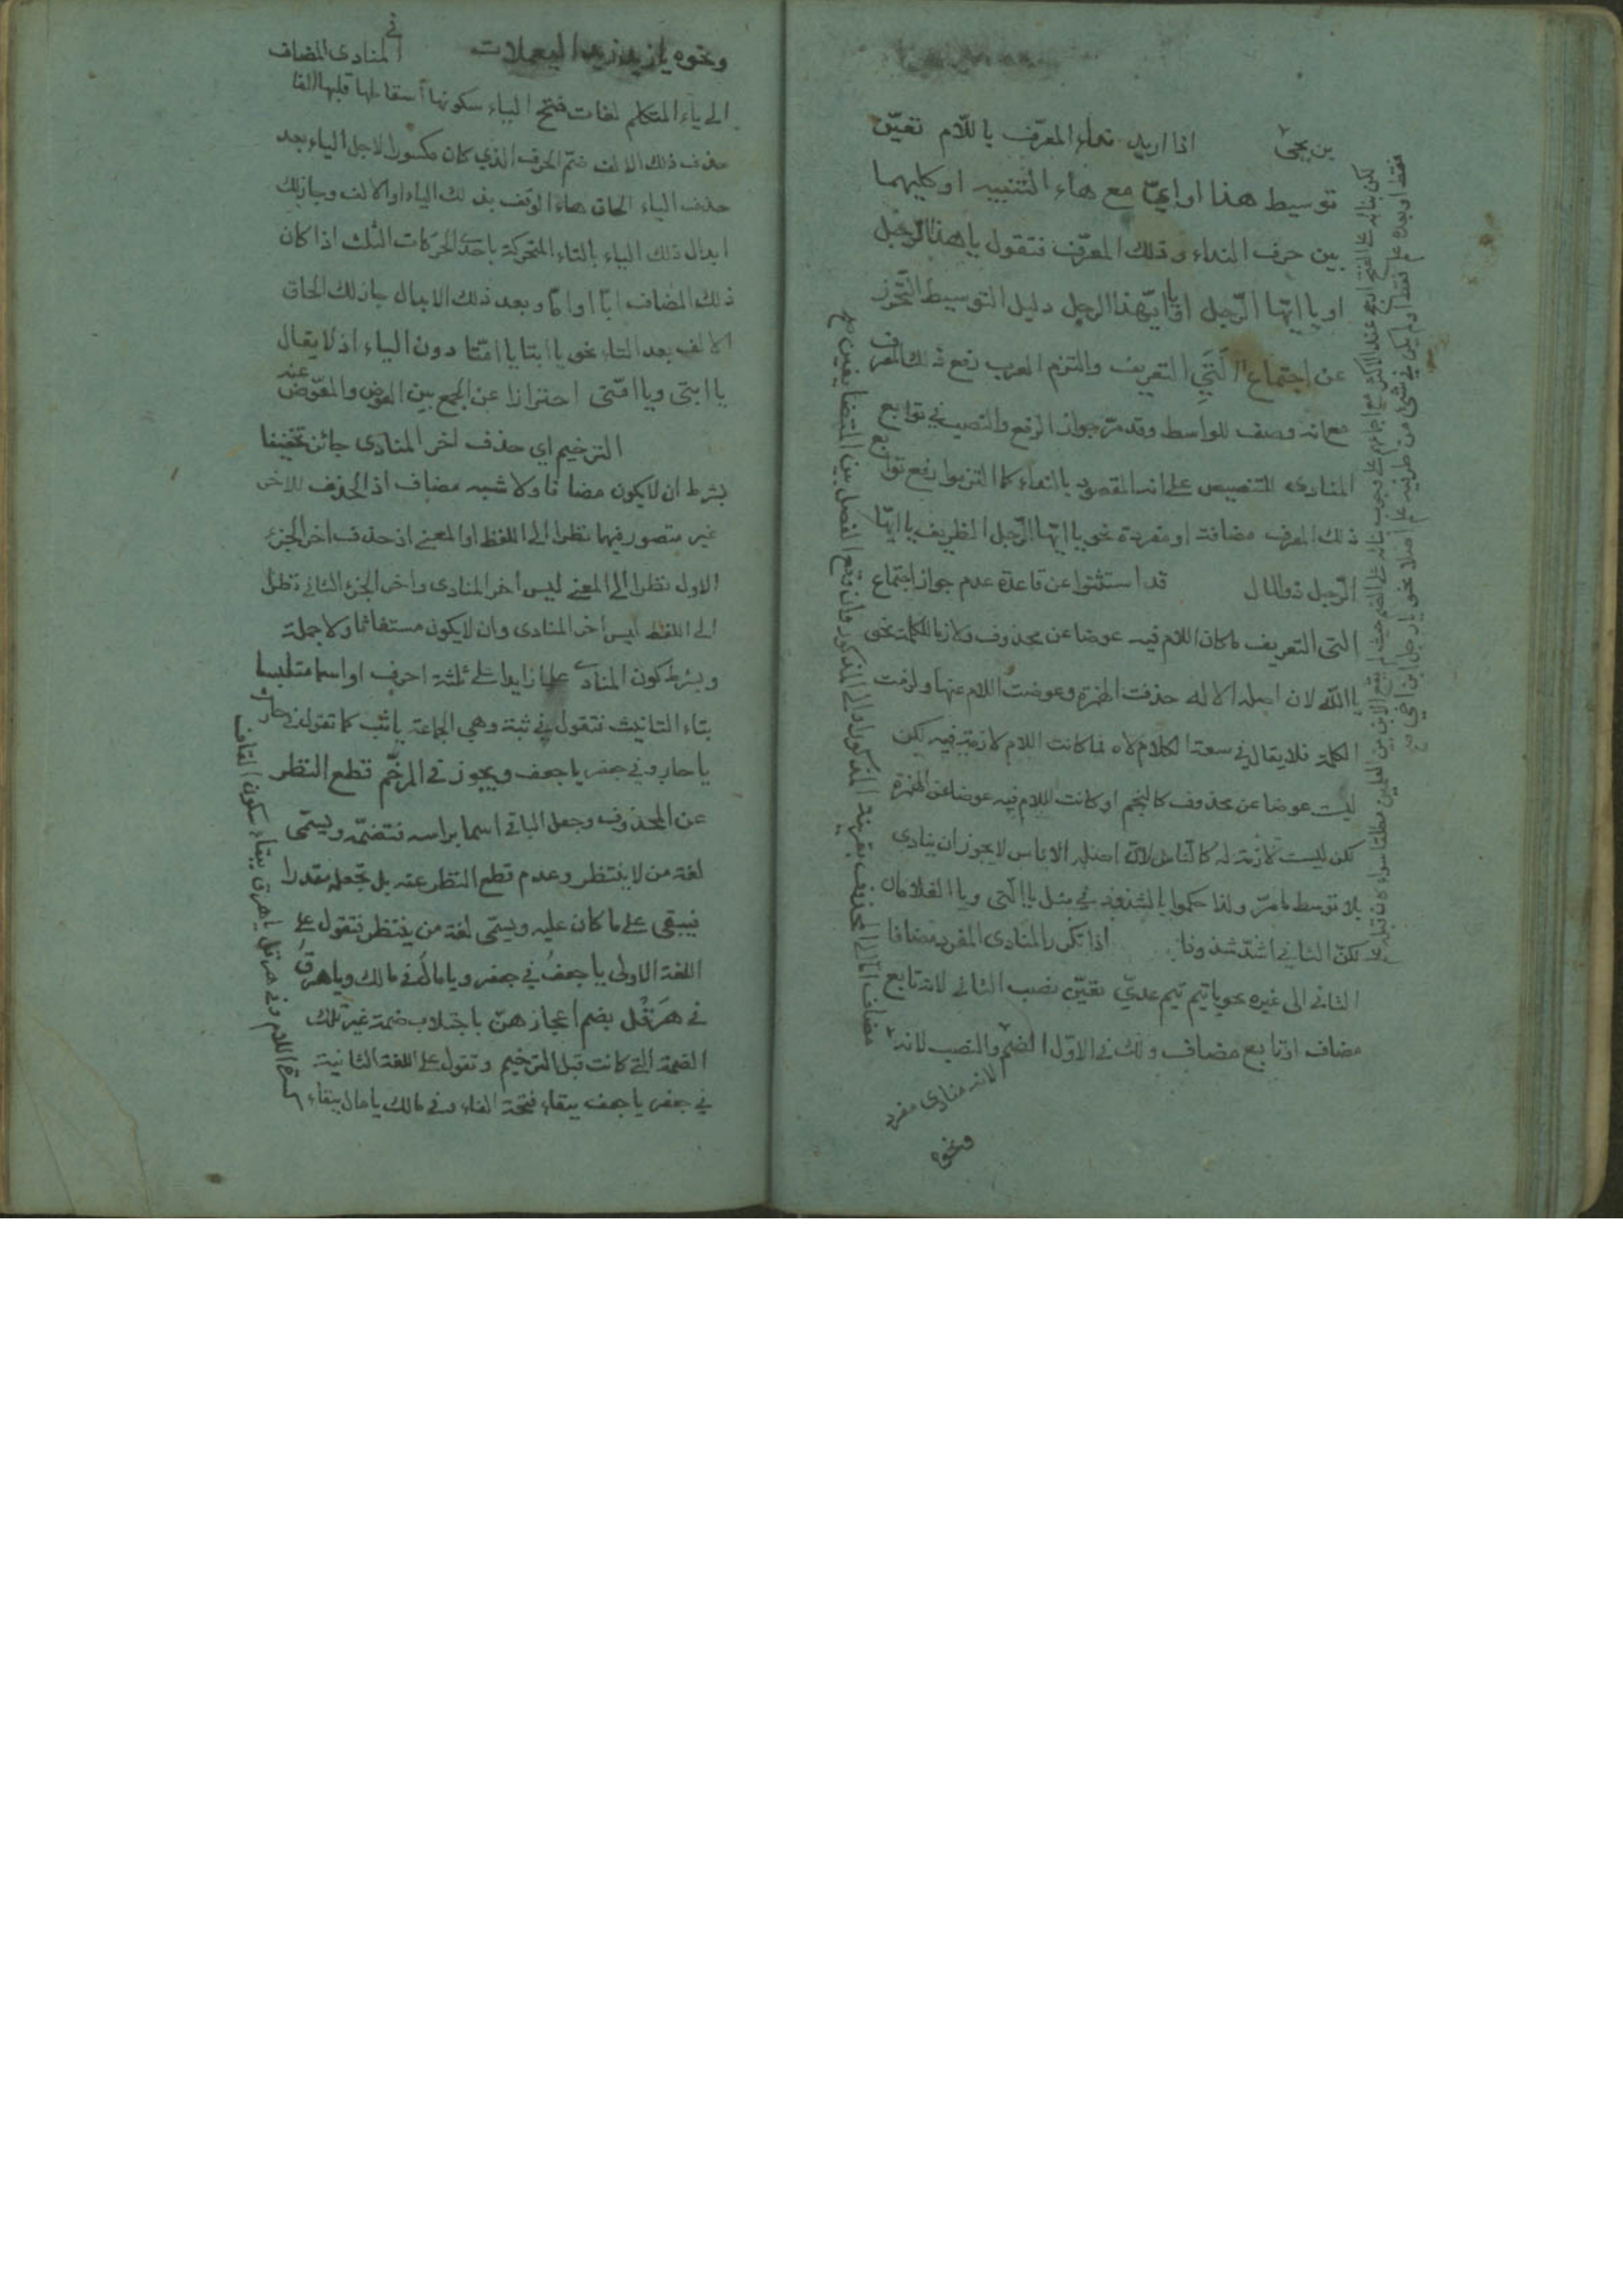 بن يحيى اذا اريد نداء المعرّف باللّام تعيّن
توسيط هذا او ايّ مع هاء التنبيه او كليهما
بين حرف النداء وذلك المعرّف فتقول يا هذا الرّجل
او يا ايّها الرّجل او يا ايّهذا الرجل دليل التوسيط التحرّز
عن اجتماع التي التعريف والتزم العرب رفع ذلك المعرف
مع انه وصف للواسط وقد مرّ جواز الرفع والنصب في توابع
المنادى للتنصيص على انه المقصود بالنداء كما التزموا رفع توابع
ذلك المعرف مضافة او مفردة نحو يا ايّها الرّجل الظريف يا ايّها
الرّجل ذو المال قد استثنوا عن قاعدة عدم جواز اجتماع
التي التعريف ما كان اللام فيه عوضا عن محذوف ولازما للكلمة نحو
يا اللّه لان اصله الاله حذفت الهمزة وعوضت اللام عنها ولزمت
الكلمة فلا يقال في سعة الكلام لاه فما كانت اللام لازمة فيه لكن
ليست عوضا عن محذوف كالنجم او كانت اللام فيه عوضا عن الهمزة
لكن ليست لازمة له كالناس لانّ اصله الاناس لا يجوز ان ينادى
بلا توسط ما مرّ ولذا حكموا بالشذوذ في مثل يا التى ويا الغلامان
لكنّ الثاني اشدّ شذوذا اذا تكرر المنادى المفرد مضافا
الثاني الى غيره نحو يا تيم تيم عديّ تعيّن نصب الثاني لانه تابع
مضاف او تابع مضاف ولك في الاوّل الضمّ والنصب لانه
لانه منادى مفرد
ونحوه
مضاف الى المحذوف بقرينة المذكور او الى المذكور وان وقع الفصل بين المتضايفين
ونحوه يا زيد زيد اليعملات في المنادى المضاف
الى ياء المتكلم لغات فتح الياء سكونها اسقاطها قلبها الفا
حذف ذلك الالف ضم الحرف الذي كان مكسورا لاجل الياء بعد
حذف الياء الحاق هاء الوقف بذلك الياء او الالف وجاز لك
ابدال ذلك الياء بالتاء المتحركة باحدى الحركات الثلث اذا كان
ذلك المضاف ابّا او امّا وبعد ذلك الابدال جاز لك الحاق
الالف بعد التاء نحو يا ابتا يا امّتا دون الياء اذ لا يقال
يا ابتى ويا امّتى احترازا عن الجمع بين العوض والمعوّض عنه
الترخيم اي حذف اخر المنادى جائز تخفيفا
بشرط ان لا يكون مضافا ولا شبه مضاف اذ الحذف للاخر
غير متصور فيهما نظرا الى اللفظ او المعنى اذ حذف اخر الجزء
الاول نظرا الى المعنى ليس اخر المنادى واخر الجزء الثاني نظرا
الى اللفظ ليس اخر المنادى وان لا يكون مستغاثا ولا جملة
وبشرط كون المنادى علما زايدا على ثلثة احرف او اسما متلبسا
بتاء التانيث فتقول في ثبة وهي الجماعة يا ثب كما تقول في حارث
يا حار وفي جعفر يا جعف ويجوز في المرخّم قطع النظر
عن المحذوف وجعل الباقي اسما براسه فتضمّه ويسمّى
لغة من لا ينتظر وعدم قطع النظر عنه بل تجعله مقدرا
فيبقى على ما كان عليه ويسمّى لغة من ينتظر فتقول على
اللغة الاولى يا جعفُ في جعفر ويا مالُ في مالك ويا هرقُ
في هرقل بضم اعجازهنّ باجتلاب ضمة غير تلك
الضمة التي كانت قبل الترخيم وتقول على اللغة الثانية
في جعفر يا جعف ببقاء فتحة الفاء وفي مالك يا مال ببقاء
كسرة اللام وفي هرقل يا هرق ببقاء سكون القاف